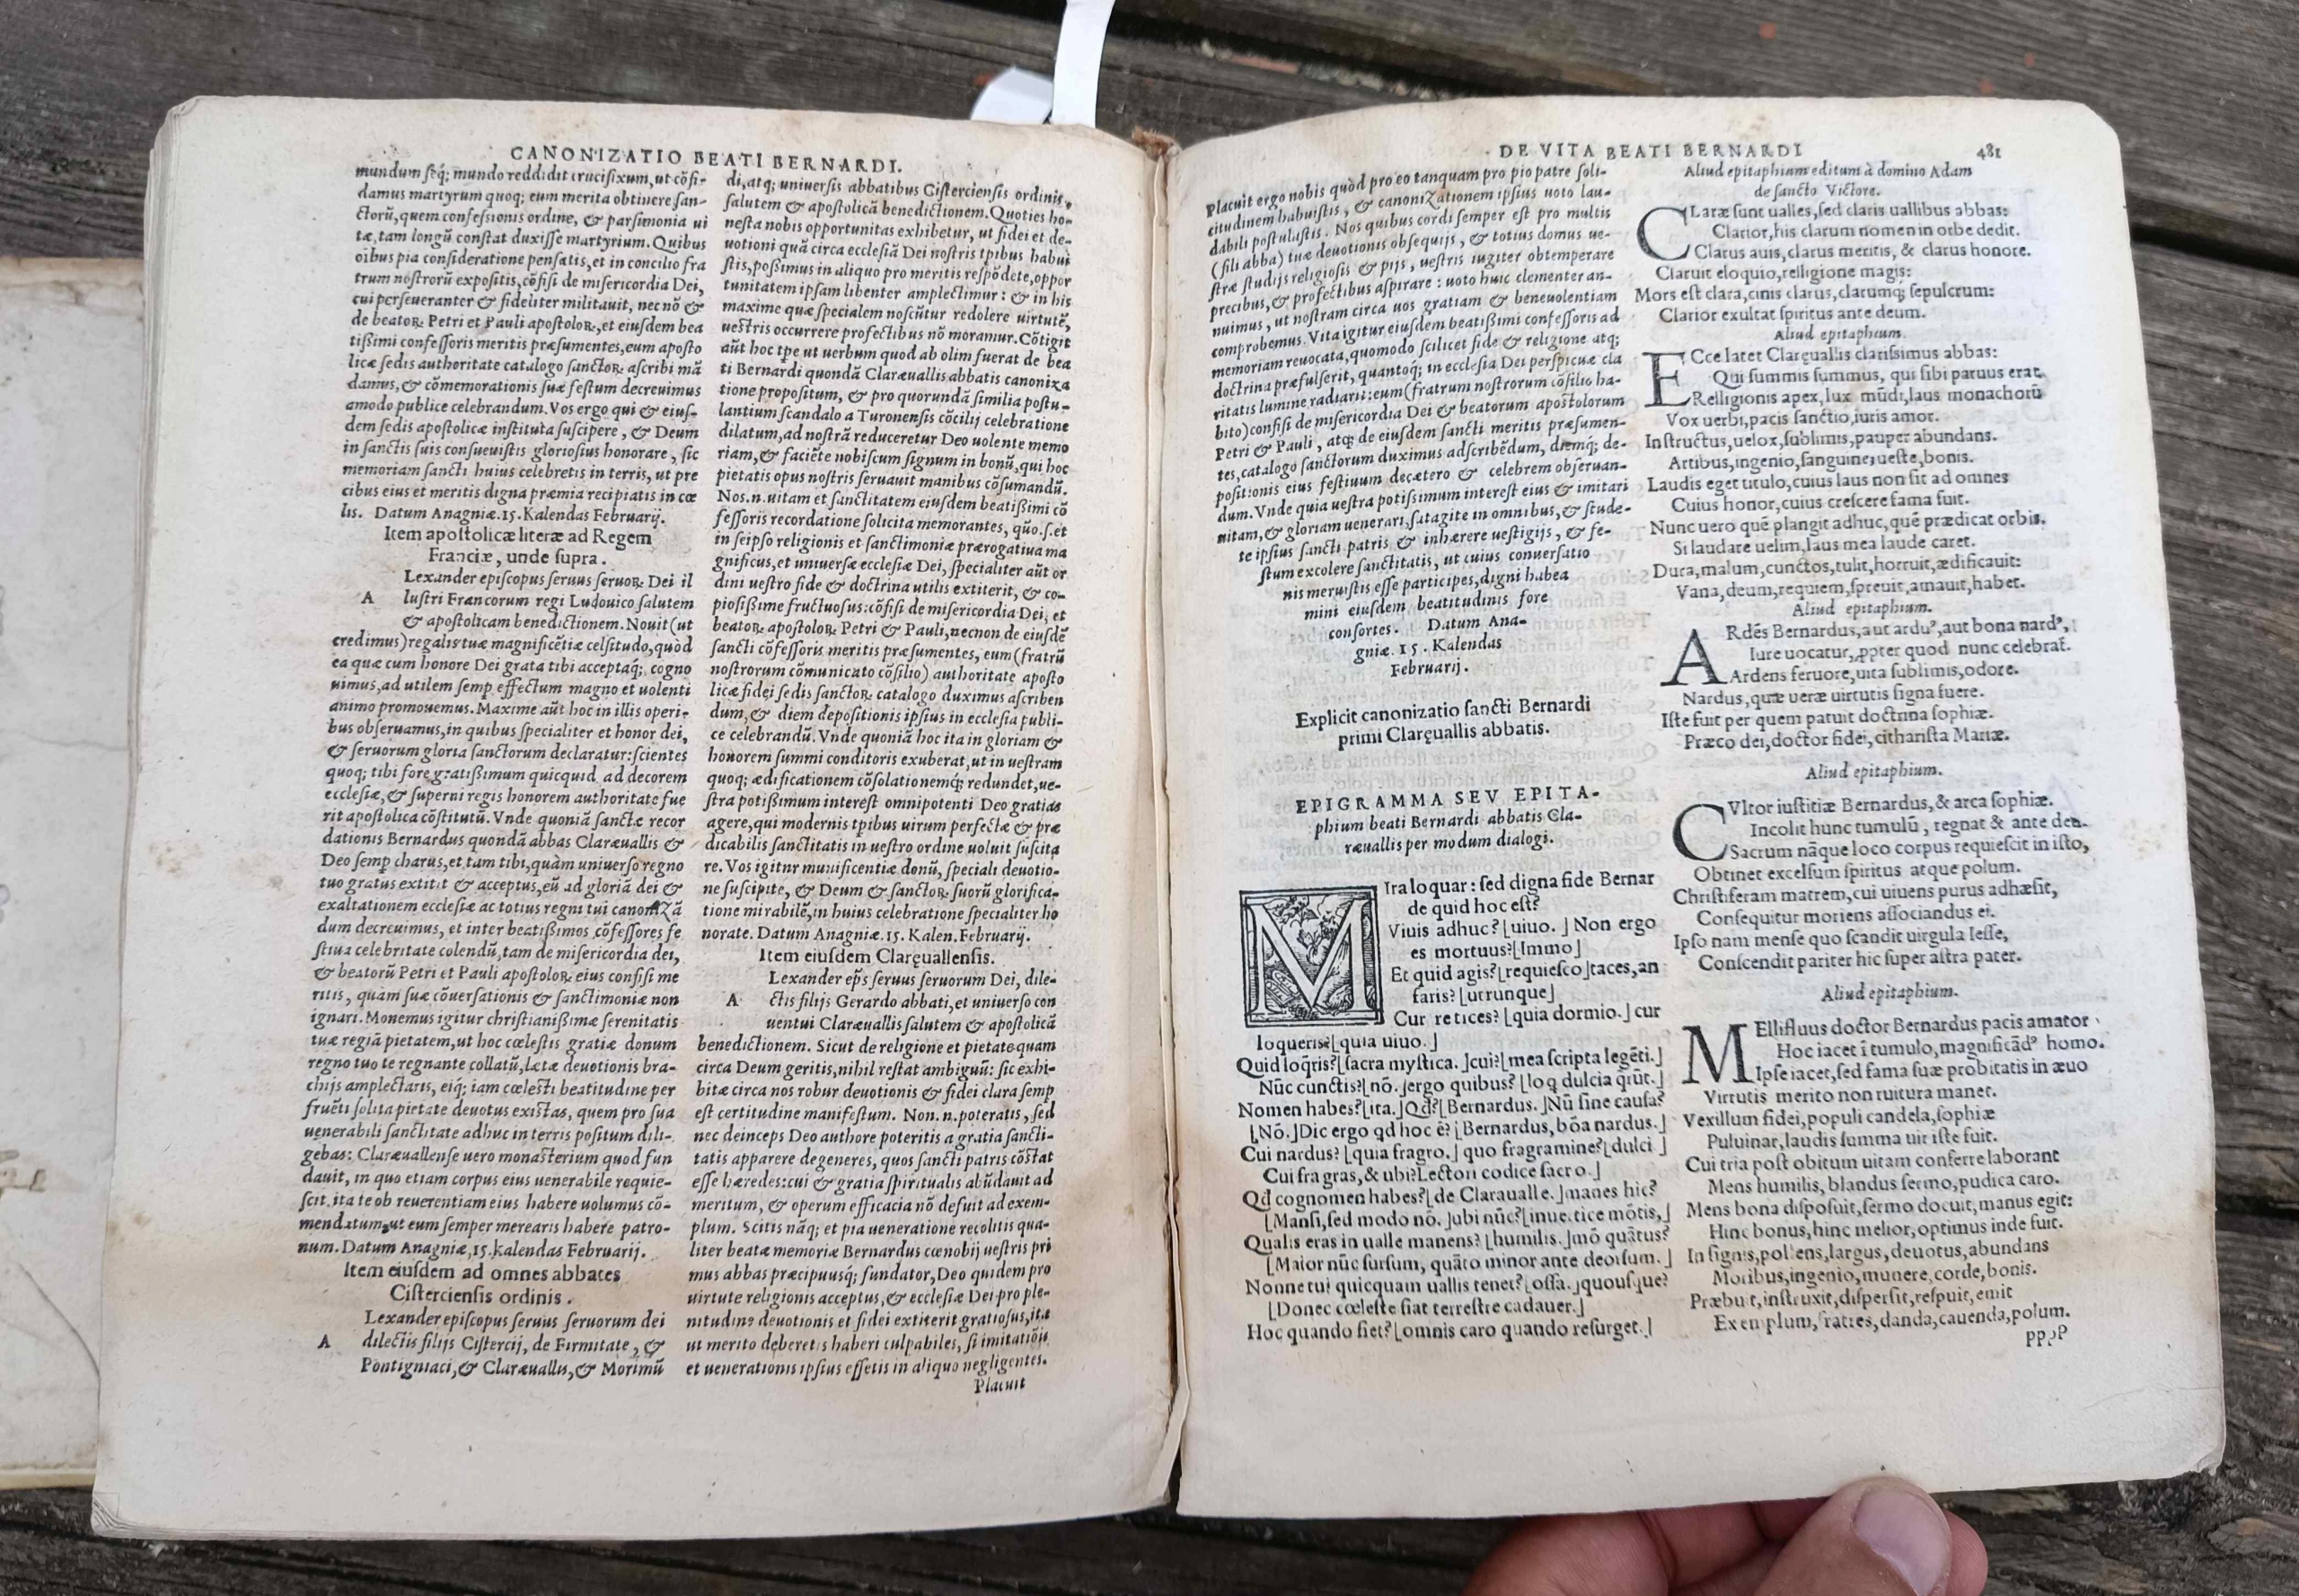 CANONIZATIO BEATI BERNARDI.
mundum seq́; mundo reddidit crucifixum, ut cõfi-
damus martyrum quoq; eum merita obtinere san-
ctorũ, quem confessionis ordine, & parsimonia ui
tæ, tam longũ constat duxisse martyrium. Quibus
oibus pia consideratione pensatis, et in concilio fra
trum nostrorũ expositis, cõfisi de misericordia Dei,
cui perseueranter & fideliter militauit, nec nõ &
de beatoꝝ Petri et Pauli apostoloꝝ, et eiusdem bea
tißimi confessoris meritis præsumentes, eum aposto
licæ sedis authoritate catalogo sanctoꝝ ascribi mã
damus, & cõmemorationis suæ festum decreuimus
amodo publice celebrandum. Vos ergo qui & eius-
dem sedis apostolicæ instituta suscipere, & Deum
in sanctis suis consueuistis gloriosius honorare, sic
memoriam sancti huius celebretis in terris, ut pre
cibus eius et meritis digna præmia recipiatis in cœ
lis. Datum Anagniæ. 15. Kalendas Februarij.
Item apostolicæ literæ ad Regem
Franciæ, unde supra.
Lexander episcopus seruus seruoꝝ Dei il
A lustri Francorum regi Ludouico salutem
& apostolicam benedictionem. Nouit (ut
credimus) regalis tuæ magnificẽtiæ celsitudo, quòd
ea quæ cum honore Dei grata tibi acceptaq́; cogno
uimus, ad utilem semp effectum magno et uolenti
animo promouemus. Maxime aũt hoc in illis operi-
bus obseruamus, in quibus specialiter et honor dei,
& seruorum gloria sanctorum declaratur: scientes
quoq; tibi fore gratißimum quicquid ad decorem
ecclesiæ, & superni regis honorem authoritate fue
rit apostolica cõstitutũ. Vnde quoniã sanctæ recor
dationis Bernardus quondã abbas Claræuallis &
Deo semp charus, et tam tibi, quàm uniuerso regno
tuo gratus extitit & acceptus, eũ ad gloriã dei &
exaltationem ecclesiæ ac totius regni tui canonizã
dum decreuimus, et inter beatißimos cõfessores fe
stiua celebritate colendũ, tam de misericordia dei,
& beatorũ Petri et Pauli apostoloꝝ eius confisi me
ritis, quàm suæ cõuersationis & sanctimoniæ non
ignari. Monemus igitur christianißimæ serenitatis
tuæ regiã pietatem, ut hoc cœlestis gratiæ donum
regno tuo te regnante collatũ, lætæ deuotionis bra-
chijs amplectaris, eiq́; iam cœlesti beatitudine per
fruẽti solita pietate deuotus existas, quem pro sua
uenerabili sanctitate adhuc in terris positum dili-
gebas: Claræuallense uero monasterium quod fun
dauit, in quo etiam corpus eius uenerabile requie-
scit, ita te ob reuerentiam eius habere uolumus cõ-
mendatum, ut eum semper merearis habere patro-
num. Datum Anagniæ, 15. Kalendas Februarij.
Item eiusdem ad omnes abbates
Cisterciensis ordinis.
Lexander episcopus seruus seruorum dei
A dilectis filijs Cistercij, de Firmitate, &
Pontigniaci, & Claræuallis, & Morimũ
di, atq; uniuersis abbatibus Cisterciensis ordinis,
salutem & apostolicã benedictionem. Quoties ho-
nesta nobis opportunitas exhibetur, ut fidei et de-
uotioni quã circa ecclesiã Dei nostris tpibus habui
stis, possimus in aliquo pro meritis respõdete, oppor
tunitatem ipsam libenter amplectimur: & in his
maxime quæ specialem noscũtur redolere uirtutẽ,
uestris occurrere profectibus nõ moramur. Cõtigit
aũt hoc tpe ut uerbum quod ab olim fuerat de bea
ti Bernardi quondã Claræuallis abbatis canoniza
tione propositum, & pro quorundã similia postu-
lantium scandalo a Turonensis cõcilij celebratione
dilatum, ad nostrã reduceretur Deo uolente memo
riam, & faciẽte nobiscum signum in bonũ, qui hoc
pietatis opus nostris seruauit manibus cõsumandũ.
Nos. n. uitam et sanctitatem eiusdem beatißimi cõ
fessoris recordatione solicita memorantes, quõ. s. et
in seipso religionis et sanctimoniæ prærogatiua ma
gnificus, et uniuersæ ecclesiæ Dei, specialiter aũt or
dini uestro fide & doctrina utilis extiterit, & co-
piosißime fructuosus: cõfisi de misericordia Dei, et
beatoꝝ apostoloꝝ Petri & Pauli, necnon de eiusdẽ
sancti cõfessoris meritis præsumentes, eum (fratrũ
nostrorum cõmunicato cõsilio) authoritate aposto
licæ fidei sedis sanctoꝝ catalogo duximus ascriben
dum, & diem depositionis ipsius in ecclesia publi-
ce celebrandũ. Vnde quoniã hoc ita in gloriam &
honorem summi conditoris exuberat, ut in uestram
quoq; ædificationem cõsolationemq́; redundet, ue-
stra potißimum interest omnipotenti Deo gratias
agere, qui modernis tpibus uirum perfectæ & præ
dicabilis sanctitatis in uestro ordine uoluit suscita
re. Vos igitur munificentiæ donũ, speciali deuotio-
ne suscipite, & Deum & sanctoꝝ suorũ glorifica-
tione mirabilẽ, in huius celebratione specialiter ho
norate. Datum Anagniæ. 15. Kalen. Februarij.
Item eiusdem Claręuallensis.
Lexander ep̃s seruus seruorum Dei, dile-
A ctis filijs Gerardo abbati, et uniuerso con
uentui Claræuallis salutem & apostolicã
benedictionem. Sicut de religione et pietate quam
circa Deum geritis, nihil restat ambiguũ: sic exhi-
bitæ circa nos robur deuotionis & fidei clara semp
est certitudine manifestum. Non. n. poteratis, sed
nec deinceps Deo authore poteritis a gratia sancti-
tatis apparere degeneres, quos sancti patris cõstat
esse hæredes: cui & gratia spiritualis abũdauit ad
meritum, & operum efficacia nõ defuit ad exem-
plum. Scitis nãq; et pia ueneratione recolitis qua-
liter beatæ memoriæ Bernardus cœnobij uestris pri
mus abbas præcipuusq́; fundator, Deo quidem pro
uirtute religionis acceptus, & ecclesiæ Dei pro ple-
nitudine deuotionis et fidei extiterit gratiosus, ita
ut merito deberetis haberi culpabiles, si imitatiõis
et uenerationis ipsius essetis in aliquo negligentes.
Placuit
DE VITA BEATI BERNARDI 481
Placuit ergo nobis quòd pro eo tanquam pro pio patre soli-
citudinem habuistis, & canonizationem ipsius uoto lau-
dabili postulastis. Nos quibus cordi semper est pro multis
(fili abba) tuæ deuotionis obsequijs, & totius domus ue-
stræ studijs religiosis & pijs, uestris iugiter obtemperare
precibus, & profectibus aspirare: uoto huic clementer an-
nuimus, ut nostram circa uos gratiam & beneuolentiam
comprobemus. Vita igitur eiusdem beatißimi confessoris ad
memoriam reuocata, quomodo scilicet fide & religione atq;
doctrina præfulserit, quantoq́; in ecclesia Dei perspicuæ cla
ritatis lumine radiarit: eum (fratrum nostrorum cõsilio ha-
bito) confisi de misericordia Dei & beatorum apostolorum
Petri & Pauli, atq; de eiusdem sancti meritis præsumen-
tes, catalogo sanctorum duximus adscribẽdum, diemq́; de-
positionis eius festiuum decætero & celebrem obseruan-
dum. Vnde quia uestra potissimum interest eius & imitari
uitam, & gloriam uenerari, satagite in omnibus, & stude-
te ipsius sancti patris & inhærere uestigijs, & fe-
stum excolere sanctitatis, ut cuius conuersatio
nis meruistis esse participes, digni habea
mini eiusdem beatitudinis fore
consortes. Datum Ana-
gniæ. 15. Kalendas
Februarij.
Explicit canonizatio sancti Bernardi
primi Claręuallis abbatis.
EPIGRAMMA SEV EPITA-
phium beati Bernardi abbatis Cla-
ræuallis per modum dialogi.
MIra loquar: sed digna fide Bernar
de quid hoc est?
Viuis adhuc? [uiuo.] Non ergo
es mortuus? [Immo]
Et quid agis? [requiesco] taces, an
faris? [utrunque]
Cur retices? [quia dormio.] cur
loqueris? [quia uiuo.]
Quid loq̃ris? [sacra mystica.] cui? [mea scripta legẽti.]
Nũc cunctis? [nõ.] ergo quibus? [loq dulcia q̃rũt.]
Nomen habes? [ita.] Qd́? [Bernardus.] Nũ sine causa?
[Nõ.] Dic ergo qd hoc ẽ? [Bernardus, bõa nardus.]
Cui nardus? [quia fragro.] quo fragramine? [dulci]
Cui fragras, & ubi? Lectori codice sacro.]
Qd cognomen habes? [de Claraualle.] manes hic?
[Mansi, sed modo nõ.] ubi nũc? [in uertice mõtis,]
Qualis eras in ualle manens? [humilis.] mõ quãtus?
[Maior nũc sursum, quãto minor ante deorsum.]
Nonne tui quicquam uallis tenet? [ossa.] quousque?
[Donec cœleste fiat terrestre cadauer.]
Hoc quando fiet? [omnis caro quando resurget.]
Aliud epitaphium editum à domino Adam
de sancto Victore.
CLaræ sunt ualles, sed claris uallibus abbas:
Clarior, his clarum nomen in orbe dedit.
Clarus auis, clarus meritis, & clarus honore.
Claruit eloquio, relligione magis:
Mors est clara, cinis clarus, clarumq́; sepulcrum:
Clarior exultat spiritus ante deum.
Aliud epitaphium.
ECce latet Claręuallis clarissimus abbas:
Qui summis summus, qui sibi paruus erat.
Relligionis apex, lux mũdi, laus monachorũ
Vox uerbi, pacis sanctio, iuris amor.
Instructus, uelox, sublimis, pauper abundans.
Artibus, ingenio, sanguine, ueste, bonis.
Laudis eget titulo, cuius laus non sit ad omnes
Cuius honor, cuius crescere fama fuit.
Nunc uero quẽ plangit adhuc, quẽ prædicat orbis.
Si laudare uelim, laus mea laude caret.
Dura, malum, cunctos, tulit, horruit, ædificauit:
Vana, deum, requiem, spreuit, amauit, habet.
Aliud epitaphium.
ARdẽs Bernardus, aut ardu⁹, aut bona nard⁹,
Iure uocatur, ꝓpter quod nunc celebrat̃.
Ardens feruore, uita sublimis, odore.
Nardus, quæ ueræ uirtutis signa fuere.
Iste fuit per quem patuit doctrina sophiæ.
Præco dei, doctor fidei, citharista Mariæ.
Aliud epitaphium.
CVltor iustitiæ Bernardus, & arca sophiæ.
Incolit hunc tumulũ, regnat & ante deũ.
Sacrum nãque loco corpus requiescit in isto,
Obtinet excelsum spiritus atque polum.
Christiferam matrem, cui uiuens purus adhæsit,
Consequitur moriens associandus ei.
Ipso nam mense quo scandit uirgula Iesse,
Conscendit pariter hic super astra pater.
Aliud epitaphium.
MEllifluus doctor Bernardus pacis amator
Hoc iacet ĩ tumulo, magnificãd⁹ homo.
Ipse iacet, sed fama suæ probitatis in æuo
Virtutis merito non ruitura manet.
Vexillum fidei, populi candela, sophiæ
Puluinar, laudis summa uir iste fuit.
Cui tria post obitum uitam conferre laborant
Mens humilis, blandus sermo, pudica caro.
Mens bona disposuit, sermo docuit, manus egit:
Hinc bonus, hinc melior, optimus inde fuit.
Insignis, pollens, largus, deuotus, abundans
Moribus, ingenio, munere, corde, bonis.
Præbuit, instruxit, dispersit, respuit, emit
Exemplum, fratres, danda, cauenda, polum.
PPpP